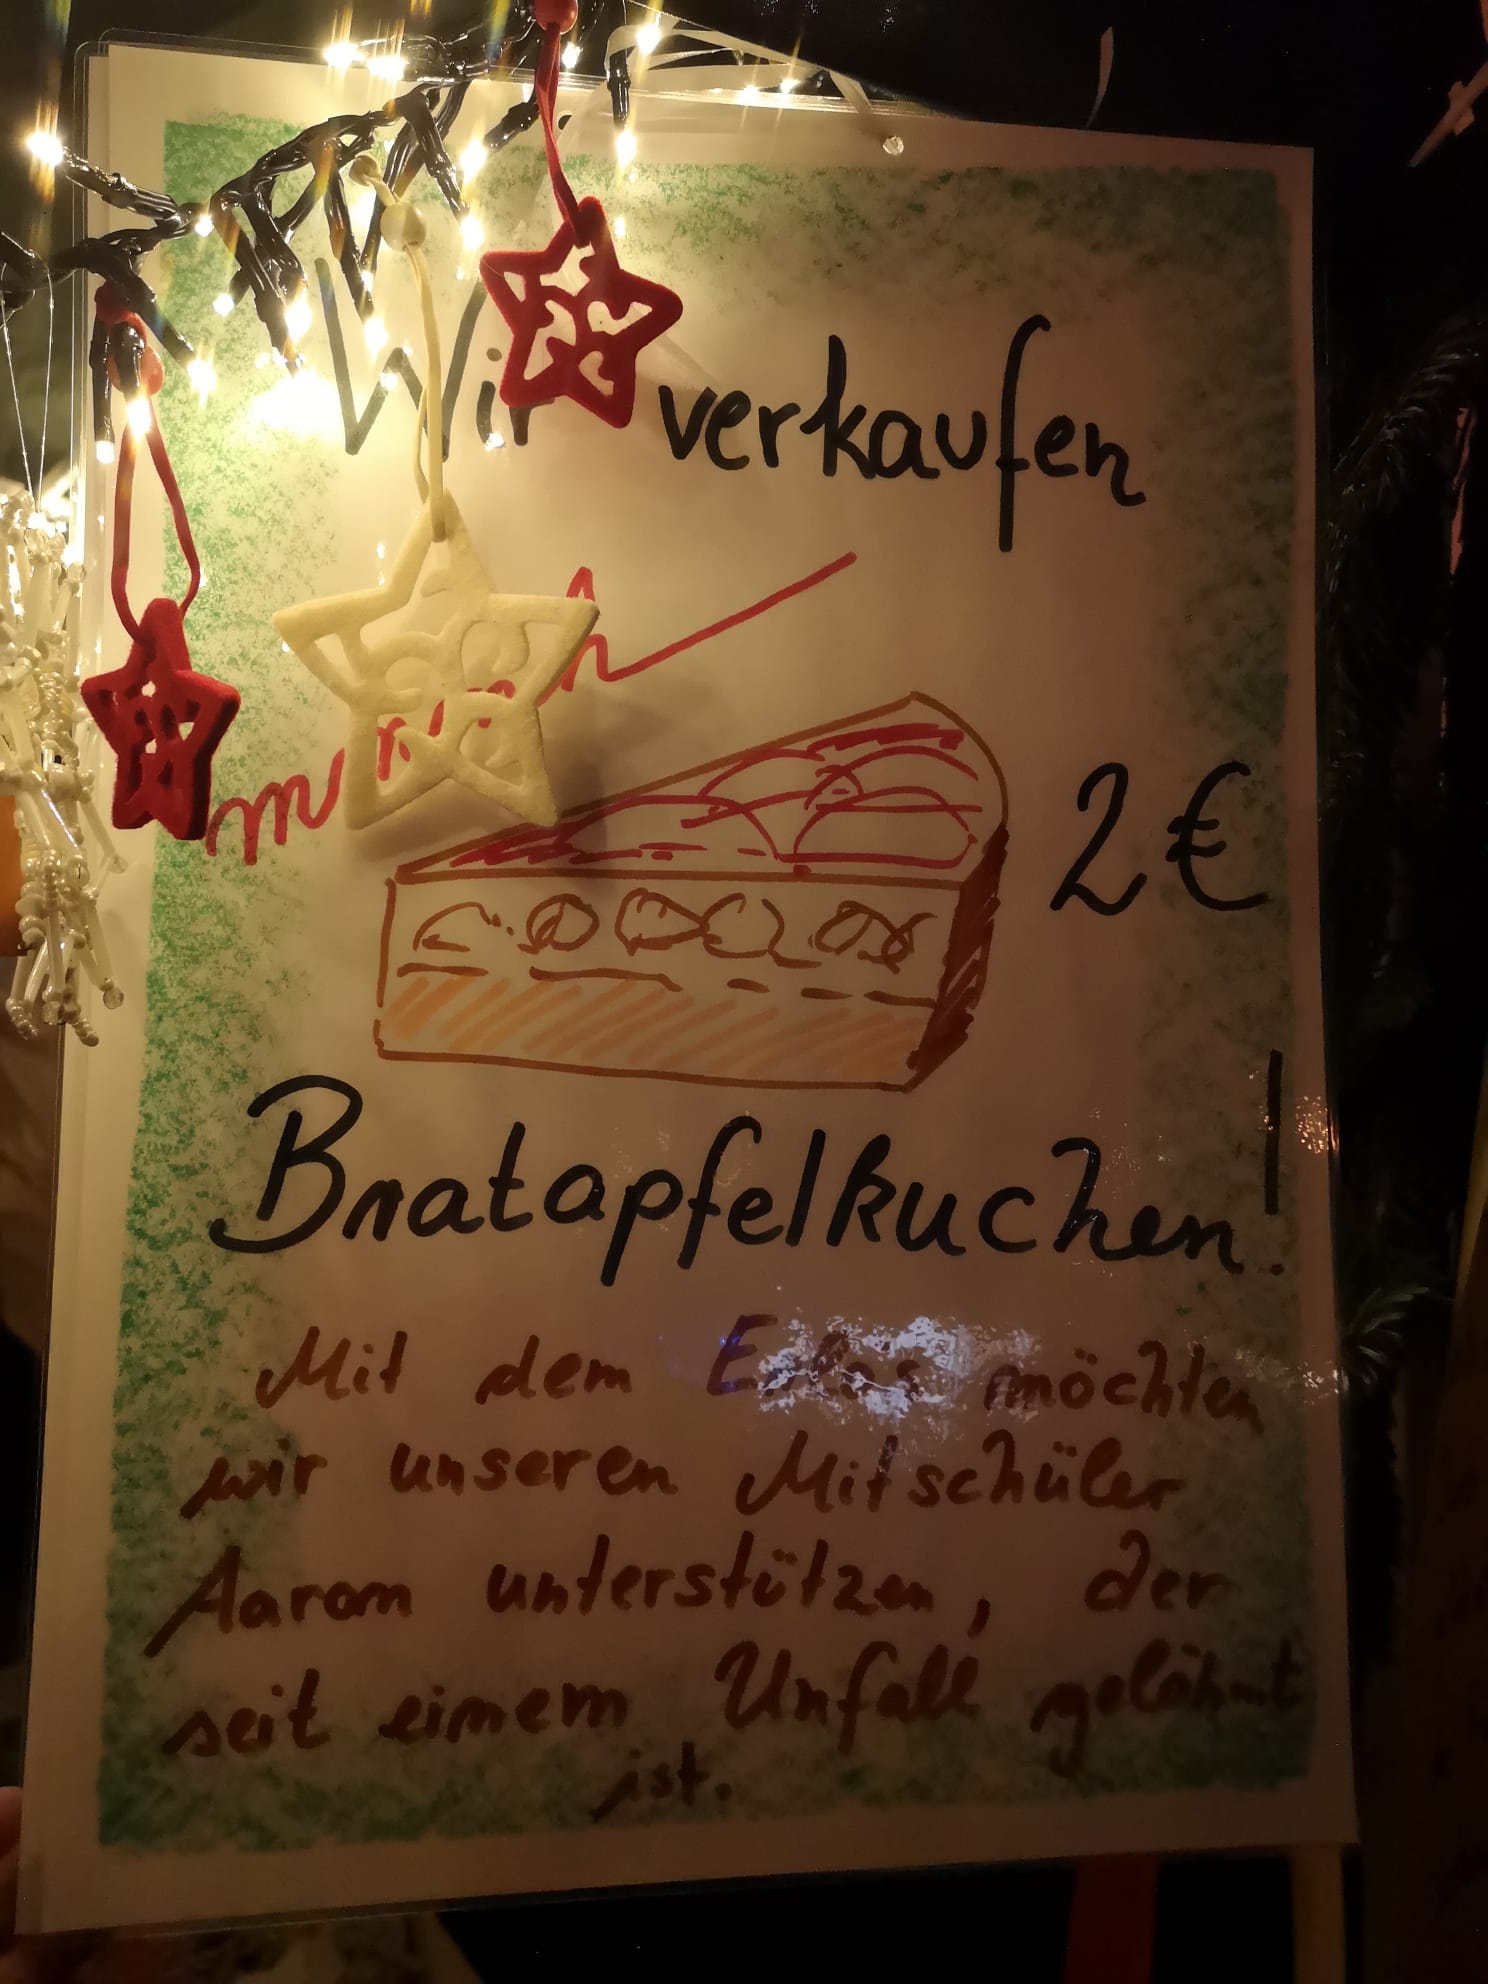 Wir verkaufen
2€
Bratapfelkuchen!
Mit dem Erlös möchten
wir unseren Mitschüler
Aaron unterstützen, der
seit einem Unfall gelähmt
ist.